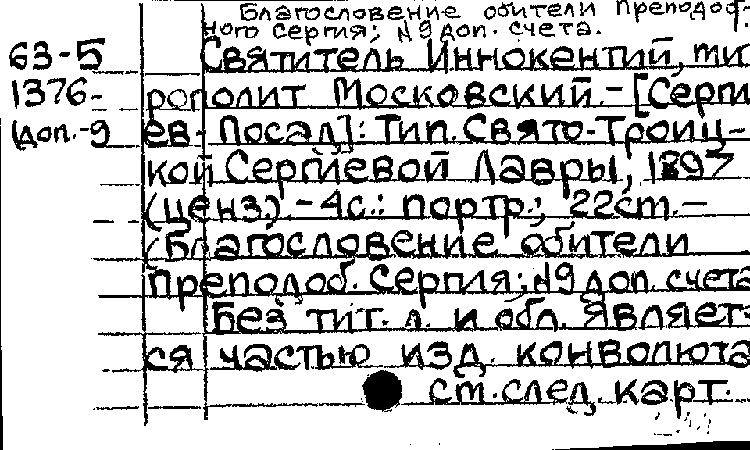 Благословение обители Преподоб-
ного Сергия; №9 доп. счета.
63-5 Святитель Иннокентий, ми
1376- рополит Московский.-[Серги
(доп.-9 ев-Посад]: Тип. Свято-Троиц-
кой Сергиевой Лавры, 1897
(ценз.).-4с.: портр.; 22см.-
(Благословение обители
Преподоб. Сергия; №9 доп. счета
Без тит. л. и обл. Является
ся частью изд. конволюта
см. след. карт.